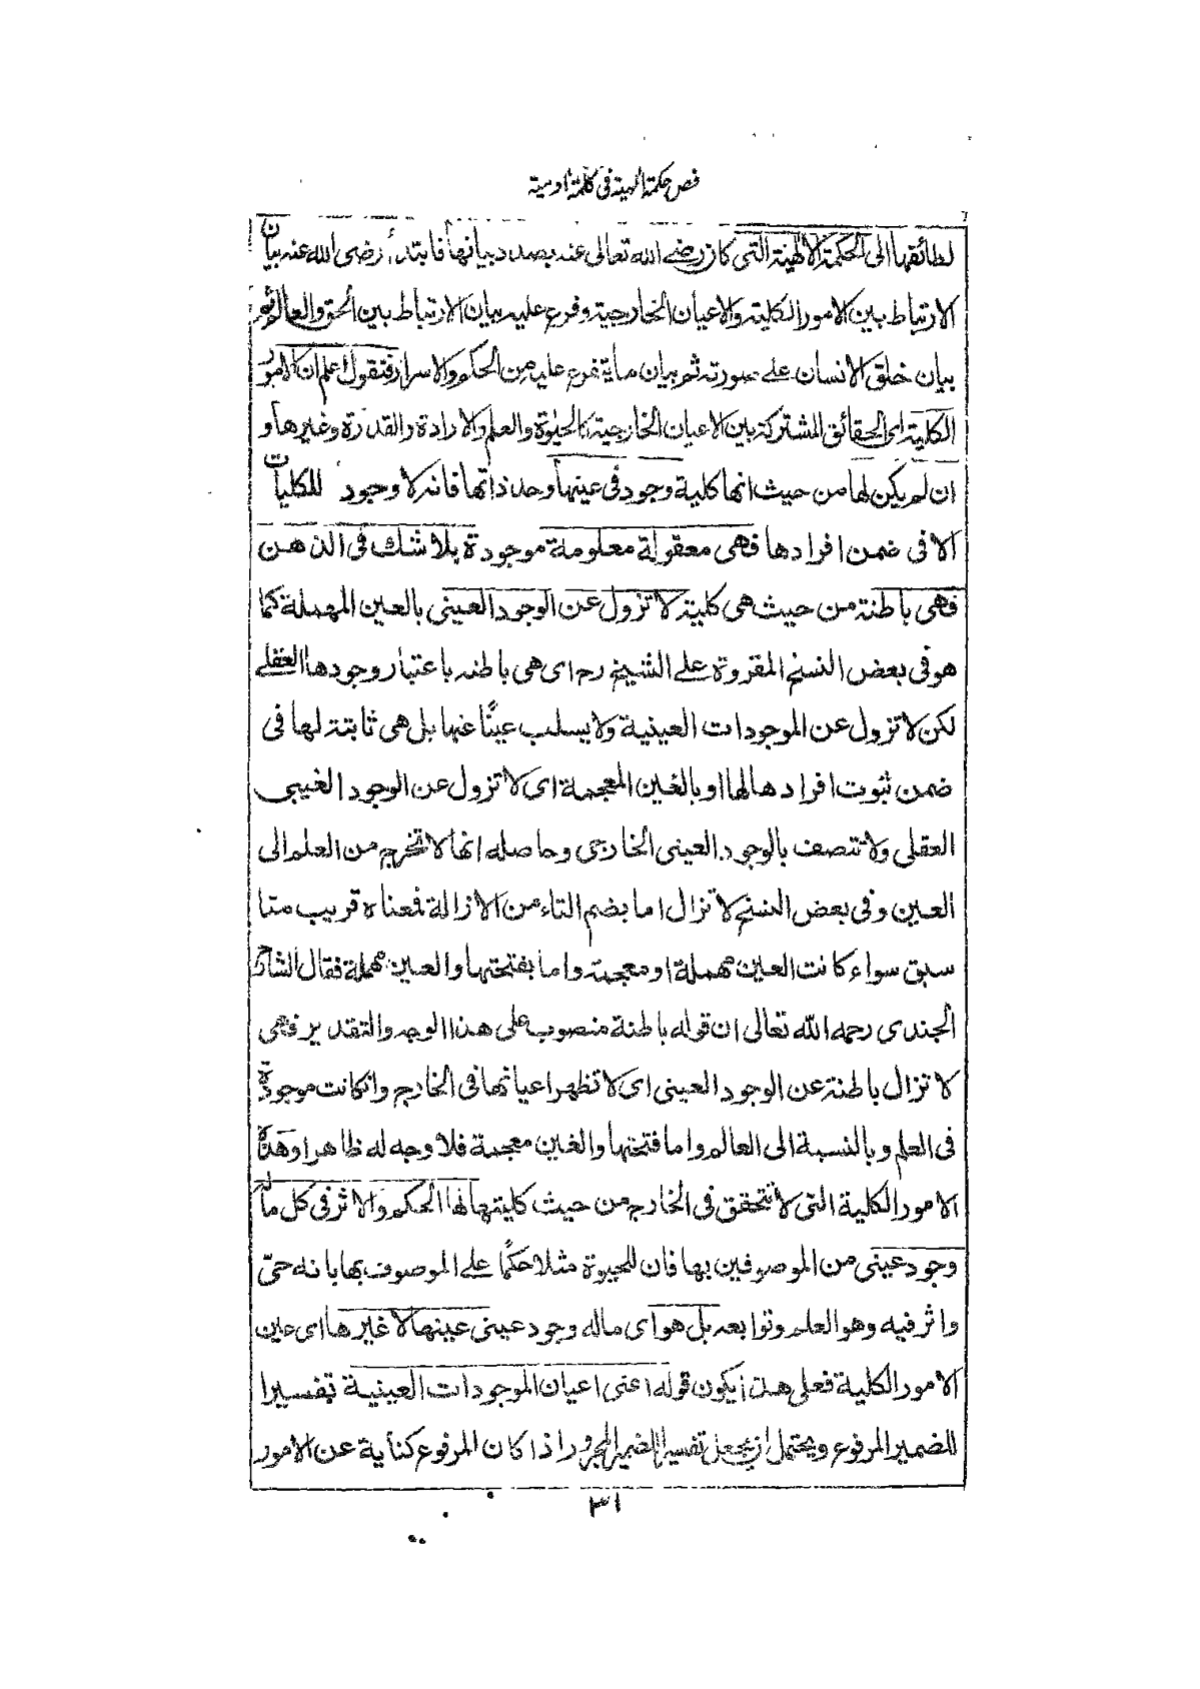 فص حكمة الهية فى كلمة ادمية
لطائفها الى الحكمة الالهية التى كان رضى الله تعالى عنه بصدد بيانها فابتدأ رضى الله عنه ببيان
الارتباط بين الامور الكلية والاعيان الخارجية وفرع عليه بيان الارتباط بين الحق والعالم ثم
بيان خلق الانسان على صورته ثم بيان ما يتفرع عليه من الحكم والاسرار فنقول اعلم ان الامور
الكلية اى الحقائق المشتركة بين الاعيان الخارجية كالحيٰوة والعلم والارادة والقدرة وغيرها و
ان لم يكن لها من حيث انها كلية وجود فى عينها وحد ذاتها فانه لا وجود للكليات
الا فى ضمن افرادها فهى معقولة معلومة موجودة بلا شك فى الذهن
فهى باطنة من حيث هى كلية لا تزول عن الوجود العينى بالعين المهملة كما
هو فى بعض النسخ المقروة على الشيخ رح اى هى باطنه باعتبار وجودها العقلى
لكن لا تزول عن الموجودات العينية ولا يسلب عينًا عنها بل هى ثابتة لها فى
ضمن ثبوت افرادها لها او بالغين المعجمة اى لا تزول عن الوجود الغيبى
العقلى ولا تتصف بالوجود العينى الخارجى وحاصله انها لا تخرج من العلم الى
العين وفى بعض النسخ لا تزال اما بضم التاء من الازالة فمعناه قريب مما
سبق سواء كانت العين مهملة او معجمة واما بفتحتها والعين مهملة فقال الشارح
الجندى رحمه الله تعالى ان قوله باطنة منصوب على هذا الوجه والتقدير فهى
لا تزال باطنة عن الوجود العينى اى لا تظهر اعيانها فى الخارج وانكانت موجودة
فى العلم وبالنسبة الى العالم واما فتحتها والغين معجمة فلا وجه له ظاهرا وهذه
الامور الكلية التى لا تتحقق فى الخارج من حيث كليتها لها الحكم والاثر فى كل ماله
وجود عينى من الموصوفين بها فان للحيوة مثلا حكمًا على الموصوف بها بانه حىّ
واثر فيه وهو العلم وتوابعه بل هو اى ماله وجود عينى عينها لا غيرها اى عين
الامور الكلية فعلى هذا يكون قوله اعنى اعيان الموجودات العينية تفسيرا
للضمير المرفوع ويحتمل ان يجعل تفسيرا للضمير المجرور اذا كان المرفوع كناية عن الامور
٣١